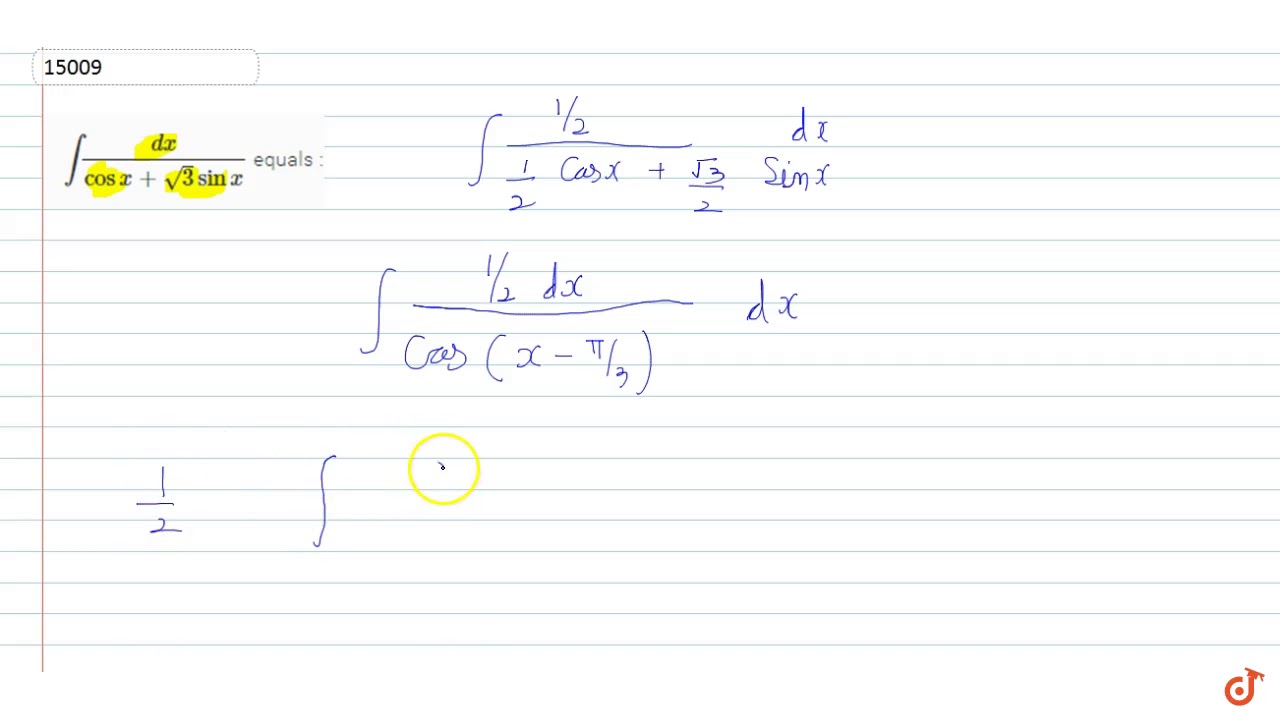 15009
∫ dx / (cos x + √3 sin x) equals :
∫ (1/2) / (1/2 Cos x + √3/2 Sin x) dx
∫ (1/2 dx) / (Cos (x − π/3)) dx
1/2 ∫